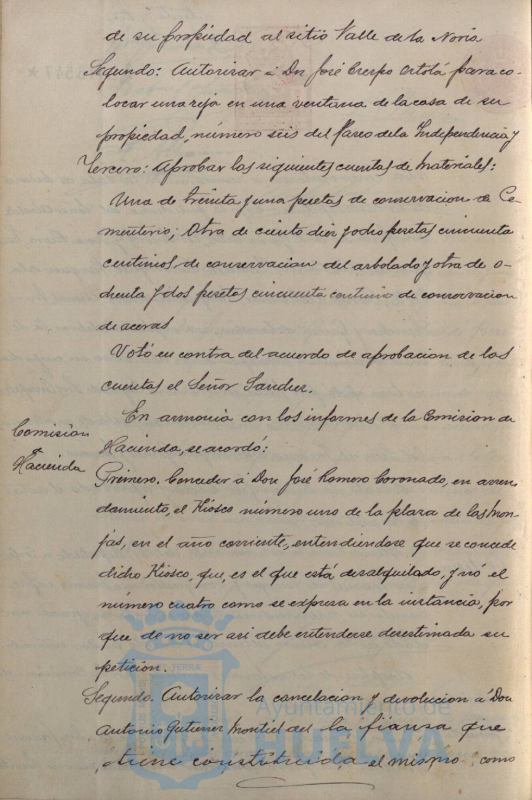 de su propiedad al sitio Valle de la Noria
Segundo: Autorizar á Don José Crespo Ortolá para co-
locar una reja en una ventana de la casa de su
propiedad, número seis del Paseo de la Independencia y
Tercero: Aprobar las siguientes cuentas de materiales:
Una de treinta y una pesetas de conservacion de Ce-
menterio; Otra de ciento diez y ocho pesetas cincuenta
centimos, de conservacion del arbolado y otra de o-
chenta y dos pesetas cincuenta centimos de conservacion
de aceras
Votó en contra del acuerdo de aprobacion de las
cuentas el Señor Sanchez.
En armonia con los informes de la Comision de
Comision
Hacienda, se acordó:
Hacienda
Primero. Conceder á Don José Romero Coronado, en arren-
damiento, el Kiosco número uno de la plaza de las Mon-
jas, en el año corriente, entendiendose que se concede
dicho Kiosco, que, es el que está desalquilado, y nó el
número cuatro como se expresa en la instancia, por
que de no ser asi debe entenderse desestimada su
petición.
Segundo. Autorizar la cancelacion y devolucion á Don
Antonio Gutierrez Montiel de la fianza que
tiene constituida el mismo, como
Ayuntamiento de
HUELVA